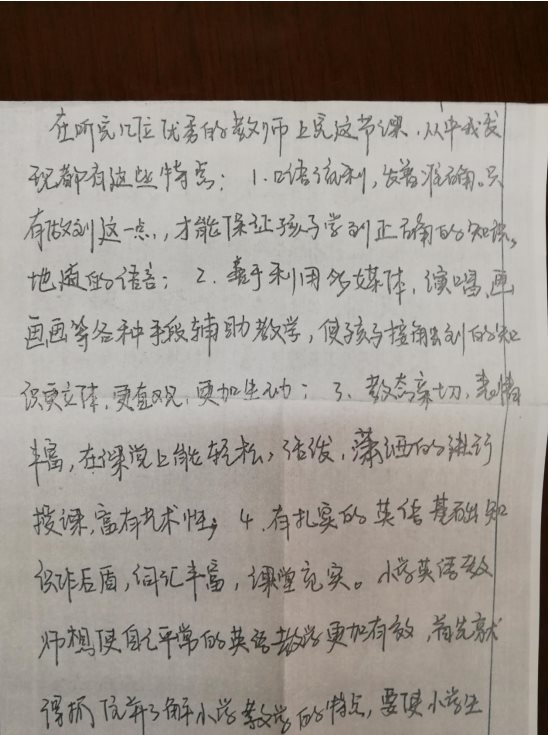 在听完几位优秀的教师上完这节课,从中我发
现都有这些特点:1.口语流利,发音准确。只
有做到这一点,才能保证孩子学到正确的知识,
地道的语言;2.善于利用多媒体,演唱、画
画画等各种手段辅助教学,使孩子接触到的知
识更立体,更直观,更加生动;3、教态亲切,表情
丰富,在课堂上能轻松,活泼,潇洒的进行
授课,富有艺术性;4、有扎实的英语基础知
识作后盾,词汇丰富,课堂充实。小学英语教
师想使自己平常的英语教学更加有效,首先就
得抓住并了解小学教学的特点,要使小学生